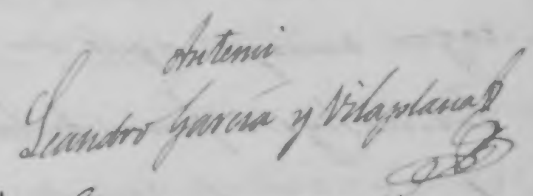 Ante mi
Leandro García y Vilaplana